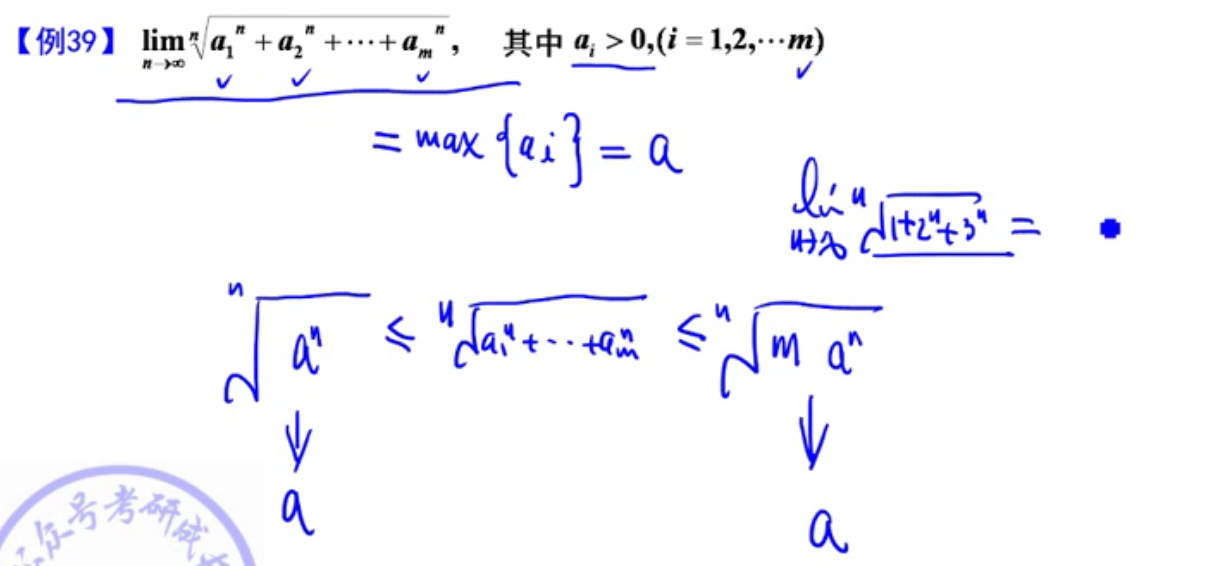 【例39】 lim n→∞ ⁿ√(a₁ⁿ + a₂ⁿ + ⋯ + aₘⁿ), 其中 aᵢ > 0,(i = 1,2,⋯m)
= max {ai} = a
lim n→∞ ⁿ√(1+2ⁿ+3ⁿ) =
ⁿ√(aⁿ) ≤ ⁿ√(a₁ⁿ+⋯+aₘⁿ) ≤ ⁿ√(m aⁿ)
↓ ↓
a a
众号考研成